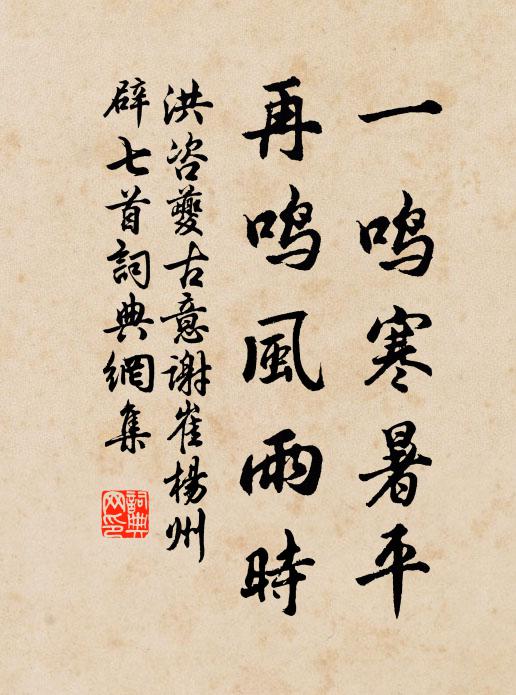 一鸣寒暑平
再鸣風雨時
洪咨夔古意謝崔楊州
辟七首詞典網集
詞典
网印